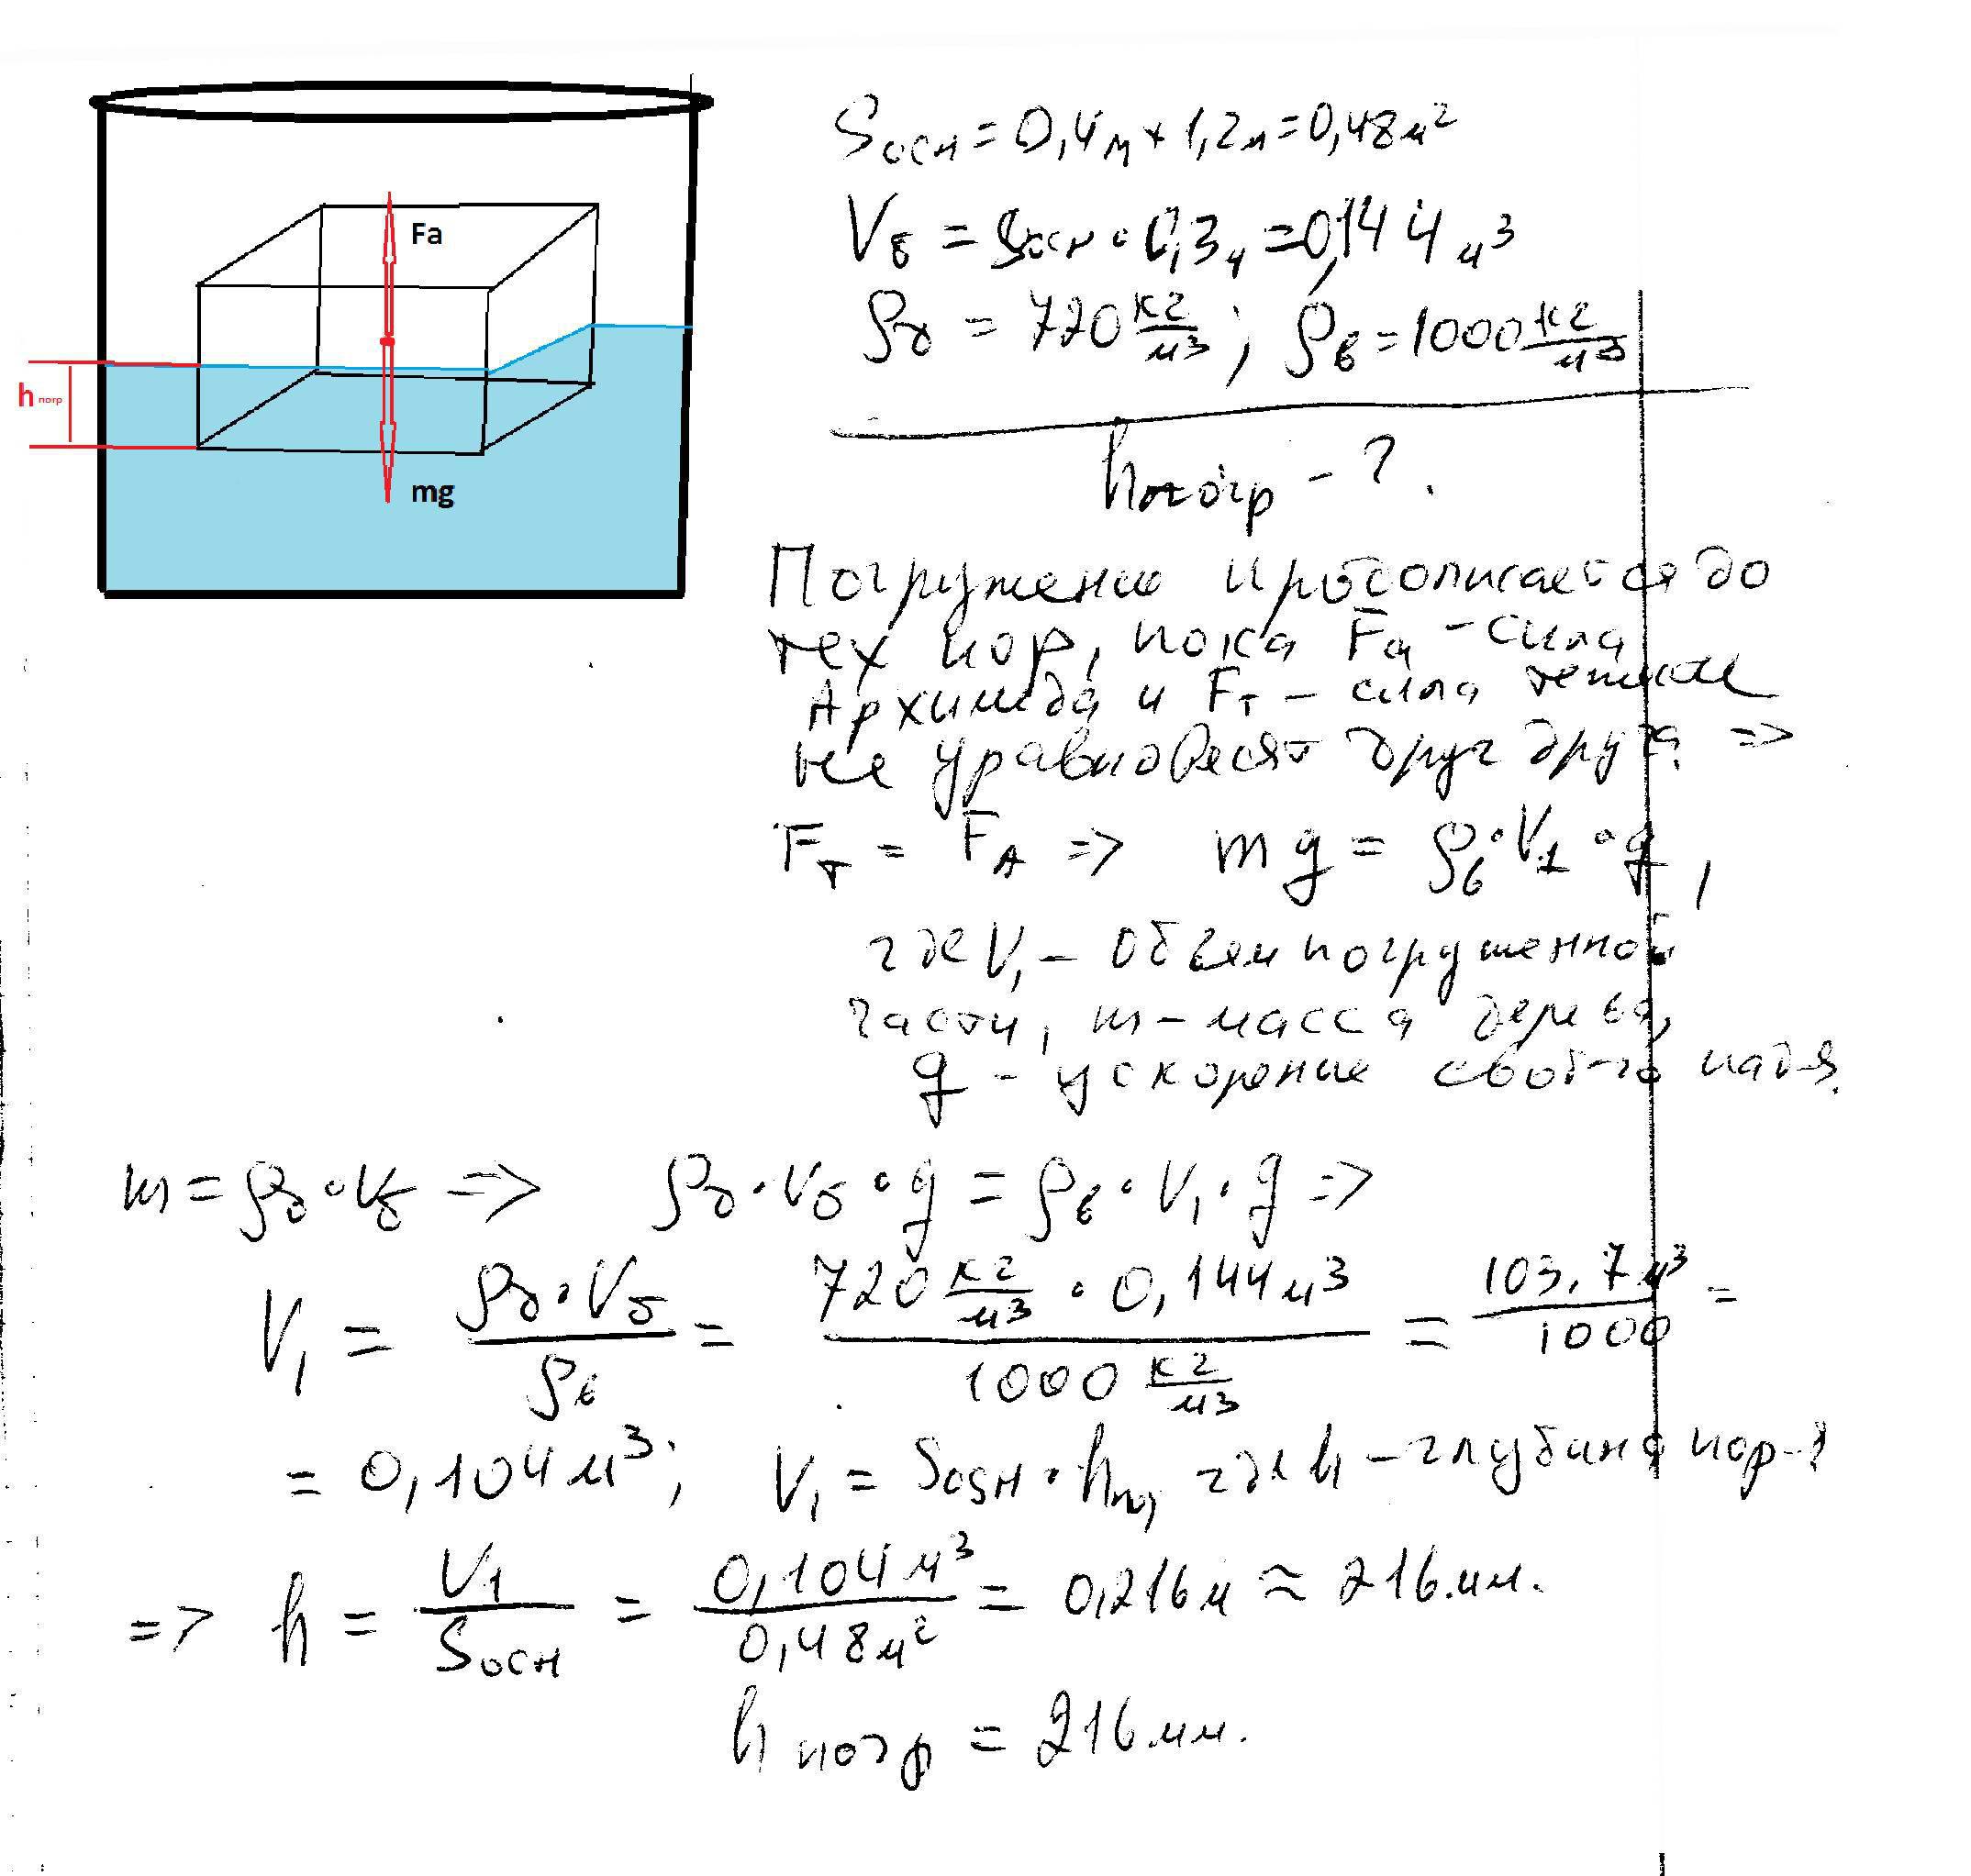 Fa
mg
h погр
Sосн = 0,4м × 1,2м = 0,48м²
Vб = Sосн · 0,3м = 0,144 м³
ρб = 720 кг/м³ ; ρв = 1000 кг/м³
hпогр - ?
Погружение продолжается до
тех пор, пока Fа - сила
Архимеда и Fт - сила тяжести
не уравновесят друг друга =>
Fт = FА => mg = ρв · V1 · g ,
где V1 - объем погруженной
части, m - масса дерева,
g - ускорение своб-го пад-я.
m = ρб · Vб => ρб · Vб · g = ρв · V1 · g =>
V1 = ρб · Vб / ρв = 720 кг/м³ · 0,144 м³ / 1000 кг/м³ = 103,7 м³ / 1000 =
= 0,104 м³; V1 = Sосн · hп, где h - глубина
=> h = V1 / Sосн = 0,104 м³ / 0,48 м² = 0,216 м ≈ 216 мм.
h погр = 216 мм.